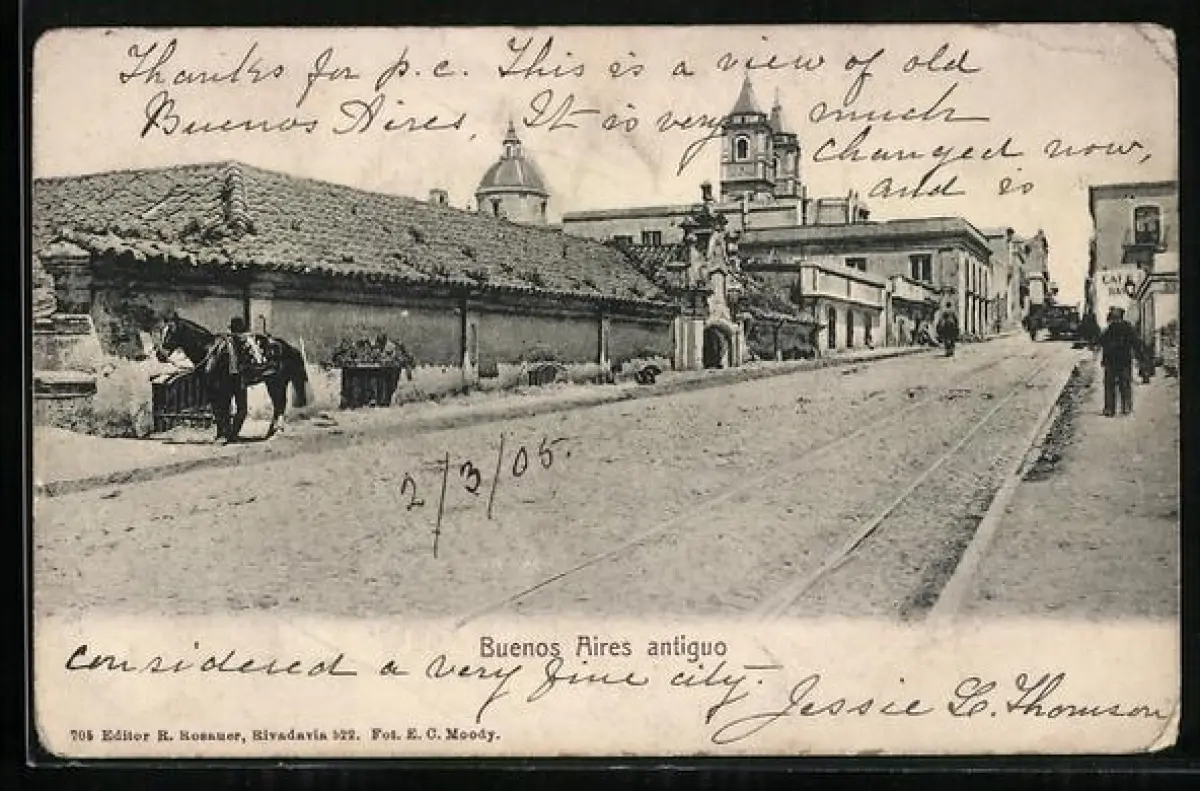 Thanks for p.c. This is a view of old
Buenos Aires, It is very much
changed now,
and is
CAFE
2/3/05.
Buenos Aires antiguo
considered a very fine city. Jessie L. Thomson
705 Editor R. Rosauer, Rivadavia 522. Fot. E. C. Moody.